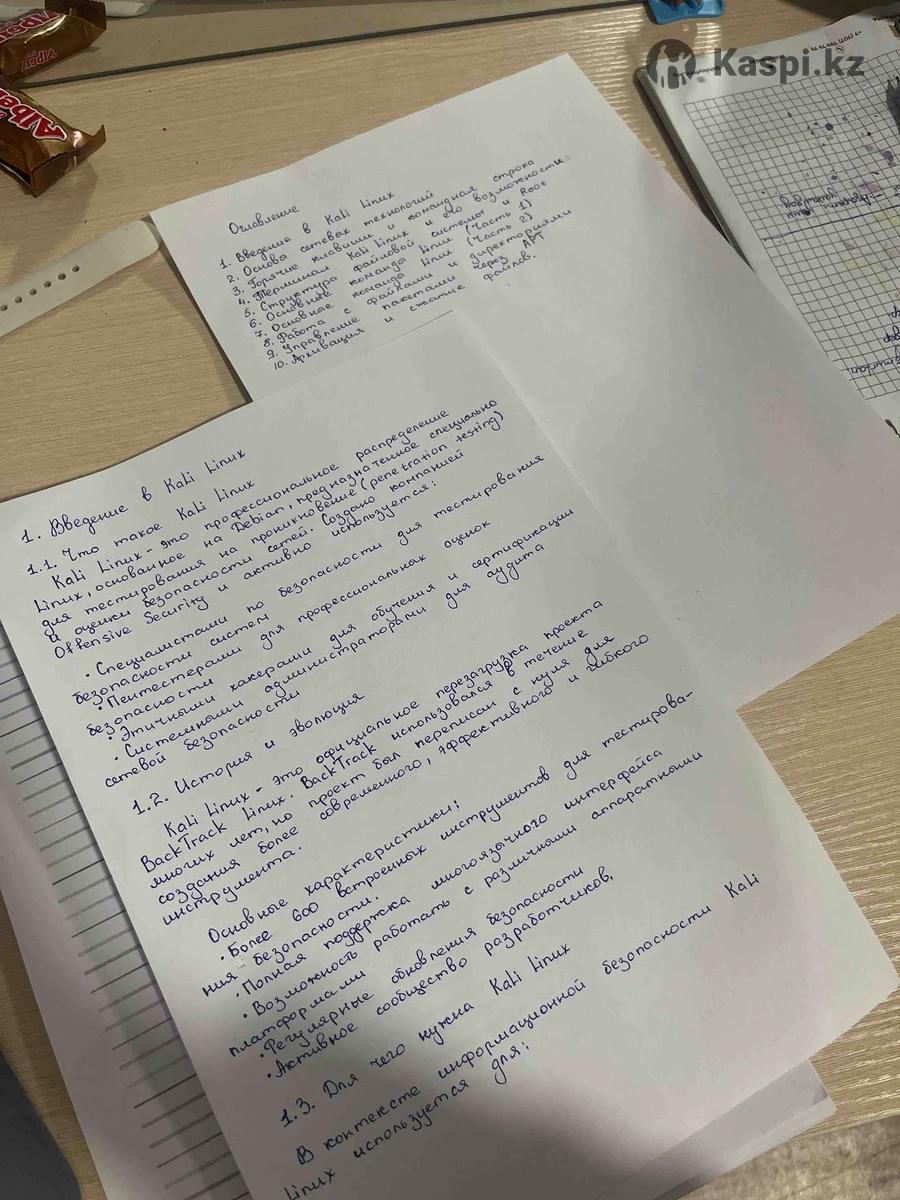 Kaspi.kz
Alpen
Оглавление
1. Введение в Kali Linux
2. Основа сетевых технологий
3. Горячие клавиши и командная строка
4. Терминал Kali Linux и его возможности
5. Структура файловой системы и Root
6. Основные команда Linux (Часть 1)
7. Основное команда Linux (Часть 2)
8. Работа с файлами и директориями
9. Управление пакетами через APT
10. Архивация и сжатие файлов.
1. Введение в Kali Linux
1.1. Что такое Kali Linux
Kali Linux - это профессиональное распределение
Linux, основанное на Debian, предназначенное специально
для тестирования на проникновение (penetration testing)
и оценки безопасности сетей. Создано компанией
Offensive Security и активно используется:
• Специалистами по безопасности для тестирования
безопасности систем
• Пентестерами для профессиональных оценок
безопасности
• Этичными хакерами для обучения и сертификации
• Системными администраторами для аудита
сетевой безопасности
1.2. История и эволюция
Kali Linux - это официальное перезагрузка проекта
BackTrack Linux. BackTrack использовался в течение
многих лет, но проект был переписан с нуля для
создания более современного, эффективного и гибкого
инструмента.
Основные характеристики:
• Более 600 встроенных инструментов для тестирова-
ния безопасности.
• Полная поддержка многоязычного интерфейса
• Возможность работать с различными аппаратными
платформами
• Регулярные обновления безопасности
• Активное сообщество разработчиков.
1.3. Для чего нужна Kali Linux
В контексте информационной безопасности Kali
Linux используется для: